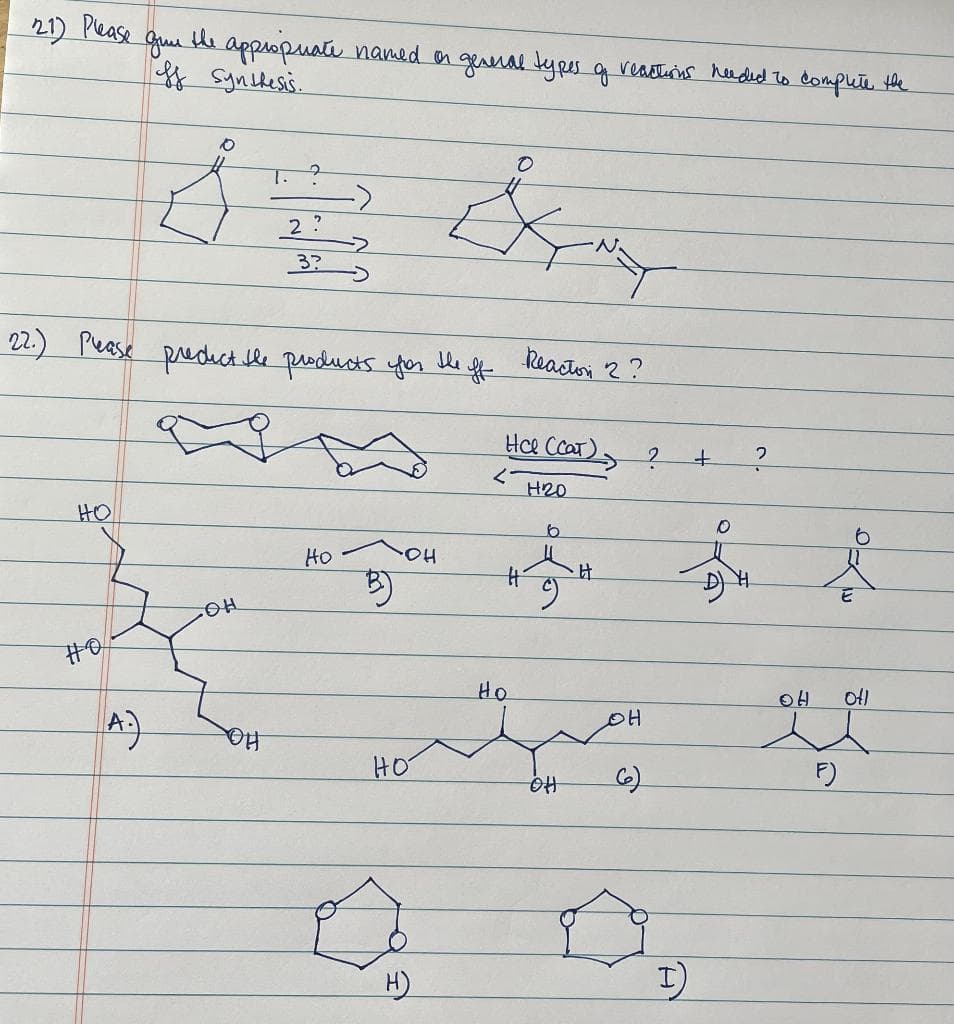 21) Please give the appropriate named or general types of reactions needed to complete the
ff synthesis.
O
1. ?
2 ?
3?
O
N
22.) Please predict the products for the ff Reaction 2?
O O
O O
HCl (cat)
H2O
? + ?
HO
OH
HO
OH
A.)
HO OH
B.)
O
H H
C)
O
H
D)
O
E
HO
OH
HO
OH
G)
OH OH
F)
O
O
H)
O O
I)